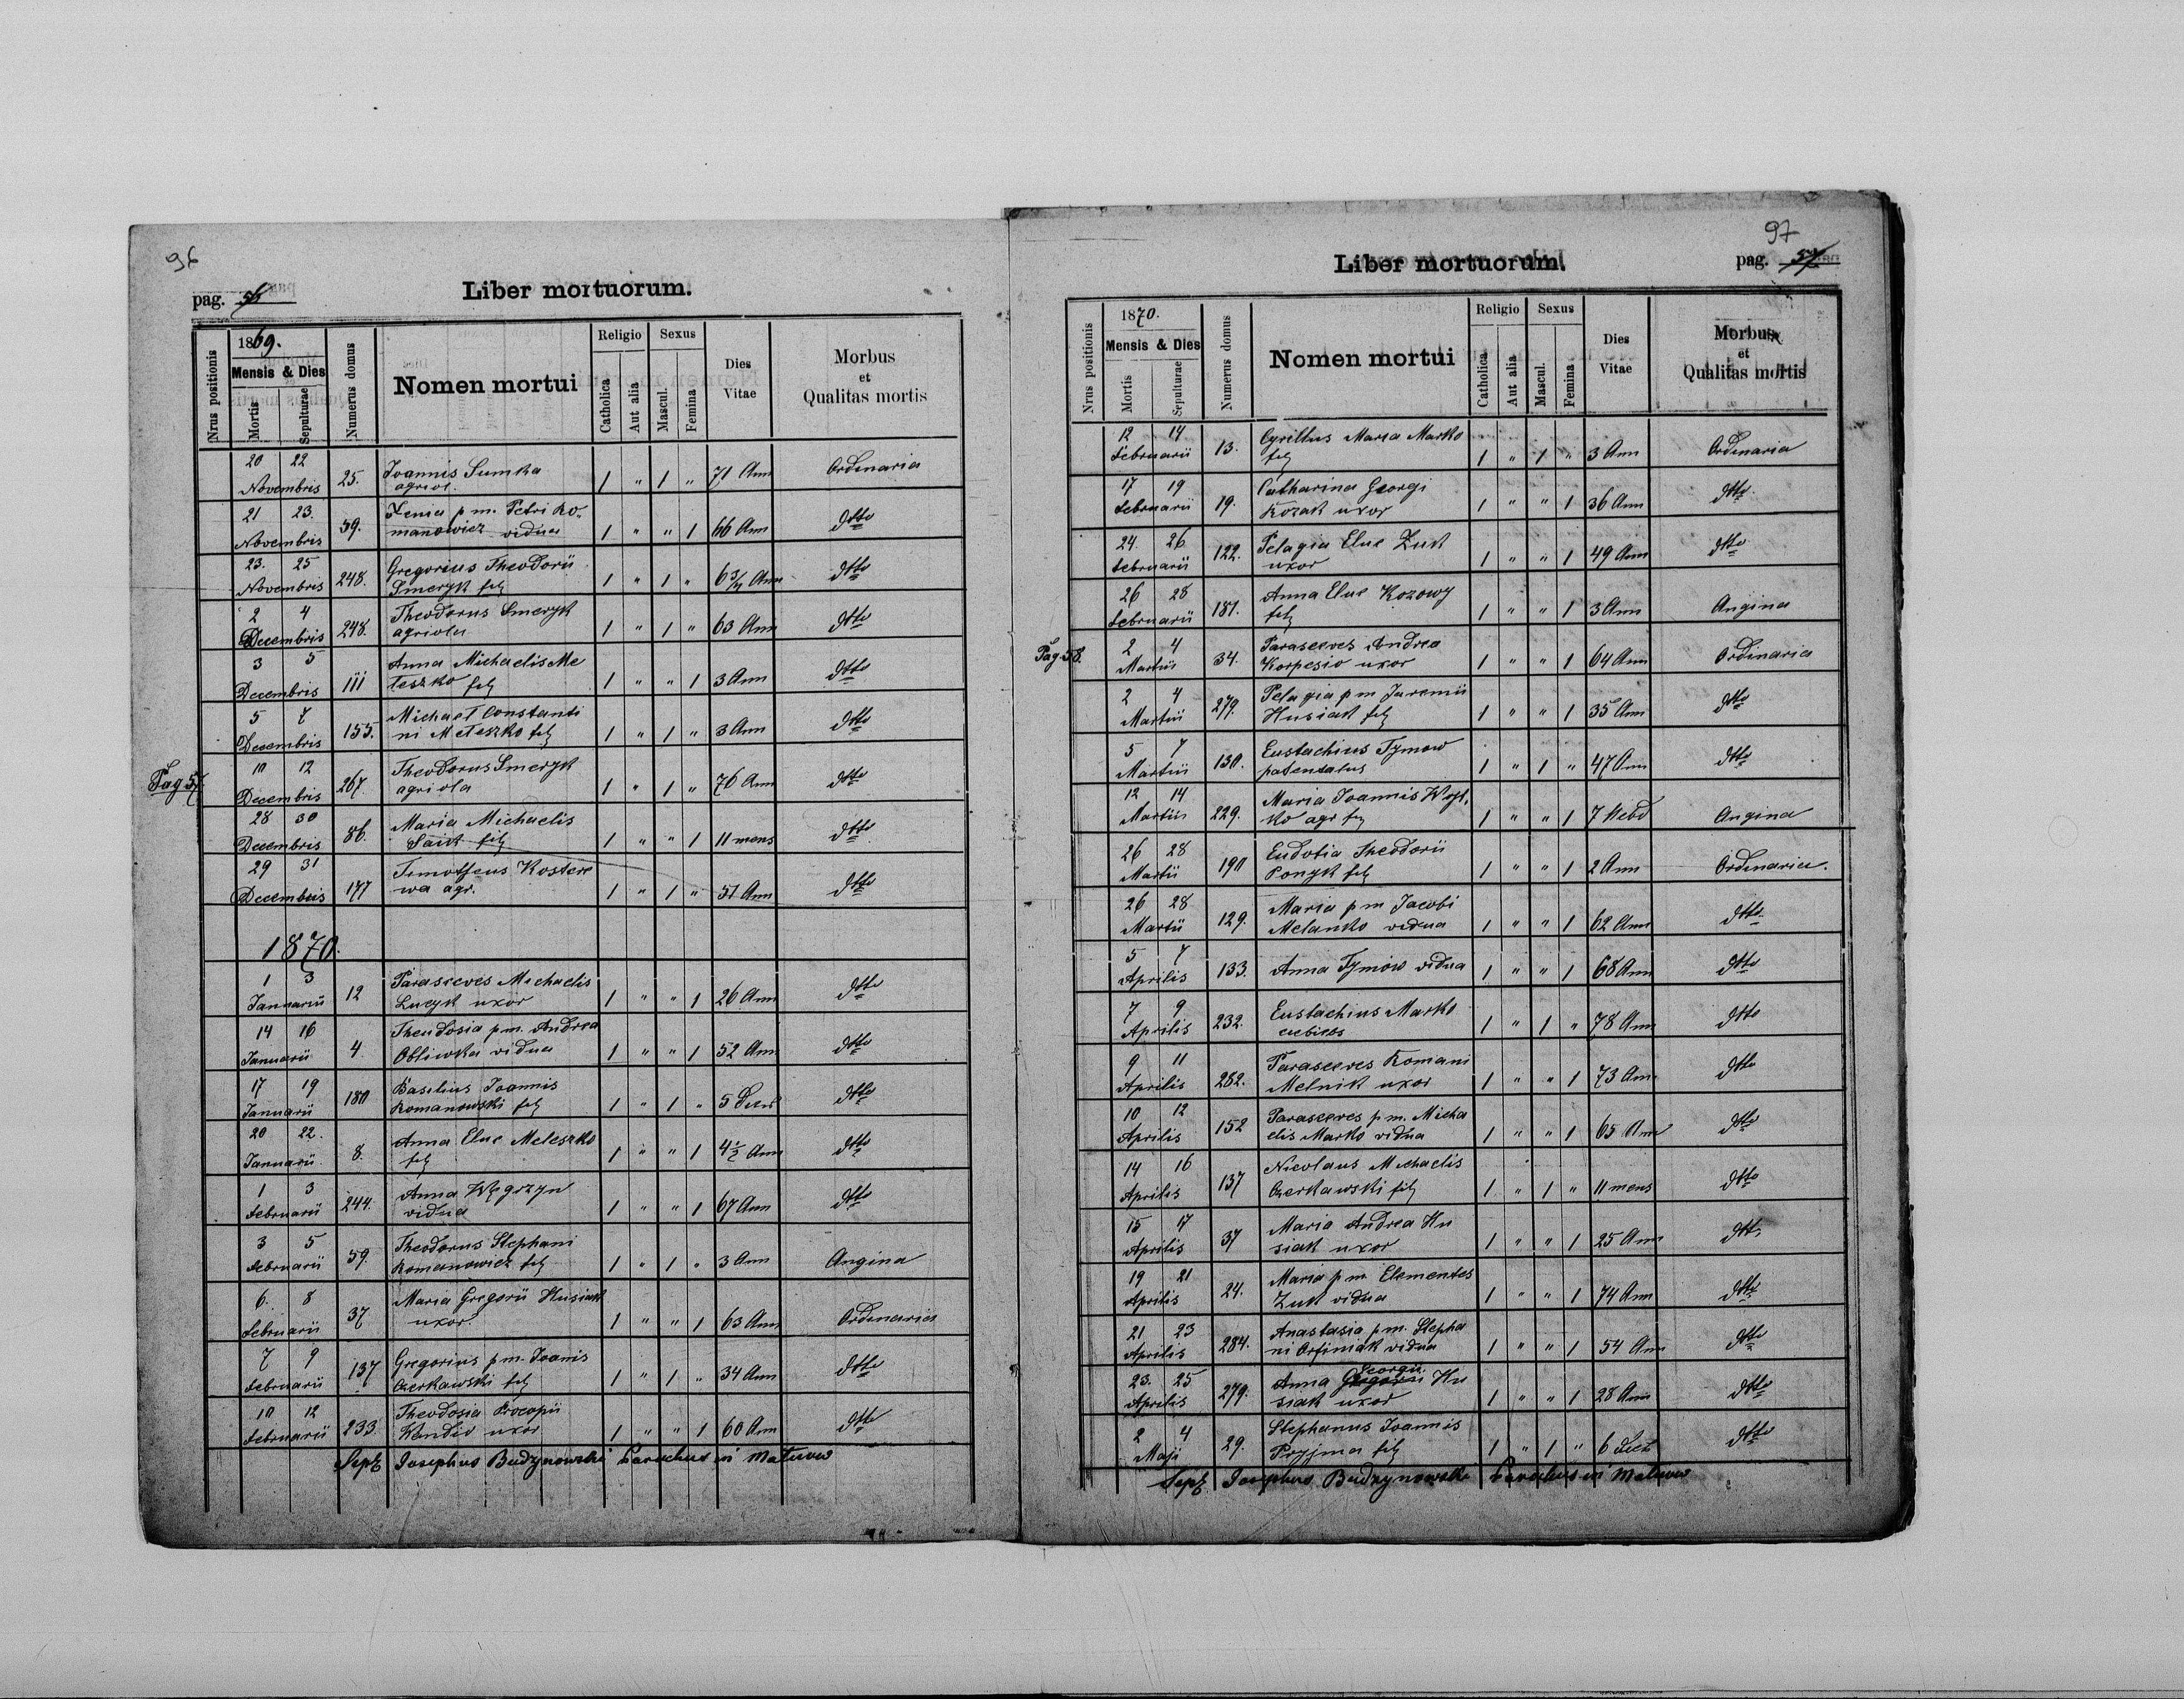 96
pag. 56
Liber mortuorum.
Nrus positionis
1869.
Mensis & Dies
Mortis
Sepulturae
Numerus domus
Nomen mortui
Religio
Catholica
Aut alia
Sexus
Mascul.
Femina
Dies
Vitae
Morbus
et
Qualitas mortis
20 22
Novembris 25. Joannis Sumka
agricol. 1 " 1 " 71 Ann Ordinaria
21 23.
Novembris 59. Xenia p m. Petri Ro„
manowicz vidua 1 " " 1 66 Ann dtto
23. 25
Novembris 248. Gregorius Theodorii
Smeryk fil 1 " 1 " Ann dtto
2 4
Decembris 248. Theodorus Smeryk
agricola 1 " 1 " 63 Ann dtto
3 5
Decembris 111 Anna Michaelis Me
leszko fil 1 " " 1 3 Ann dtto
5 7
Decembris 155. Michael Constanti
ni Meleszko fil 1 " 1 " 3 Ann dtto
Pag 57
10 12
Decembris 267 Theodorus Smeryk
agricola 1 " 1 " 76 Ann dtto
28 30
Decembris 86. Maria Michaelis
fil 1 " " 1 11 mens dtto
29 31
Decembris 177 Timotheus Kostere
wa agr. 1 " 1 " 51 Ann dtto
1870.
1 3
Januarii 12 Parasceves Michaelis
Lucyk uxor 1 " " 1 26 Ann dtto
14 16
Januarii 4 Theodosia p m. Andrea
Obliwka vidua 1 " " 1 52 Ann dtto
17 19
Januarii 180 Basilius Joannis
Romanowski fil 1 " 1 " 5 dtto
20 22.
Januarii 8. Anna Elae Meleszko
fil 1 " " 1 4½ Ann dtto
1 3
Februarii 244. Anna Węgrzyn
vidua 1 " " 1 67 Ann dtto
3 5
Februarii 59. Theodorus Stephani
Romanowicz fil 1 " 1 " 3 Ann Angina
6. 8
Februarii 37 Maria Gregorii Husiak
uxor. 1 " " 1 63 Ann Ordinaria
7 9
Februarii 137 Gregorius p m. Joanis
Czerkawski fil 1 " 1 " 34 Ann dtto
10 12
Februarii 233. Theodosia Procopii
uxor 1 " " 1 60 Ann dtto
Josephus Budzynowski Parochus in
97
Liber mortuorum.
pag. 57
Nrus positionis
1870.
Mensis & Dies
Mortis
Sepulturae
Numerus domus
Nomen mortui
Religio
Catholica
Aut alia
Sexus
Mascul.
Femina
Dies
Vitae
Morbus
et
Qualitas mortis
12 14
Februarii 13. Cyrillus Maria Marko
fil 1 " 1 " 3 Ann Ordinaria
17 19
Februarii 19. Catharina Georgi
Kozak uxor 1 " " 1 36 Ann dtto.
24. 26
Februarii 122. Pelagia Elae Zuk
uxor 1 " " 1 49 Ann dtto
26 28
Februarii 181. Anna Elae Kozowy
fil 1 " " 1 3 Ann Angina
Pag 58.
2 4
Martii 34. Parasceves Andrea
Korpesio uxor 1 " " 1 64 Ann Ordinaria
2 4
Martii 279. Pelagia p m Jaremii
Husiak fil 1 " " 1 35 Ann dtto
5 7
Martii 130. Eustachius Tymow
patentalus 1 " 1 " 47 Ann dtto
12 14
Martii 229. Maria Joannis Wojt„
ko agr fil 1 " " 1 7 Hebd Angina
26 28
Martii 190 Eudotia Theodorii
Ponyk fil 1 " " 1 2 Ann Ordinaria.
26 28
Martii 129. Maria p m Jacobi
Melanko vidua 1 " " 1 62 Ann dtto.
5 7
Aprilis 133. Anna Tymow vidua 1 " " 1 68 Ann dtto
7 9
Aprilis 232. Eustachius Marko
1 " 1 " 78 Ann dtto
9 11
Aprilis 282. Parasceves Romani
Melnik uxor 1 " " 1 73 Ann dtto
10 12
Aprilis 152 Parasceves p m. Micha
elis Marko vidua 1 " " 1 65 Ann dtto
14 16
Aprilis 137 Nicolaus Michaelis
Czerkawski fil 1 " 1 " 11 mens dtto
15 17
Aprilis 37 Maria Andrea Hu
siak uxor 1 " " 1 25 Ann dtto
19 21
Aprilis 24. Maria p m Elementes
Zuk vidua 1 " " 1 74 Ann dtto
21 23
Aprilis 284. Anastasia p m. Stepha
ni Orfiniak vidua 1 " " 1 54 Ann dtto
23. 25
Aprilis 279. Anna Gregorii Georgii Hu
siak uxor 1 " " 1 28 Ann dtto
2 4
Maji 29. Stephanus Joannis
Pryjma fil 1 " 1 " 6 dtto
Josephus Budzynowski Parochus in